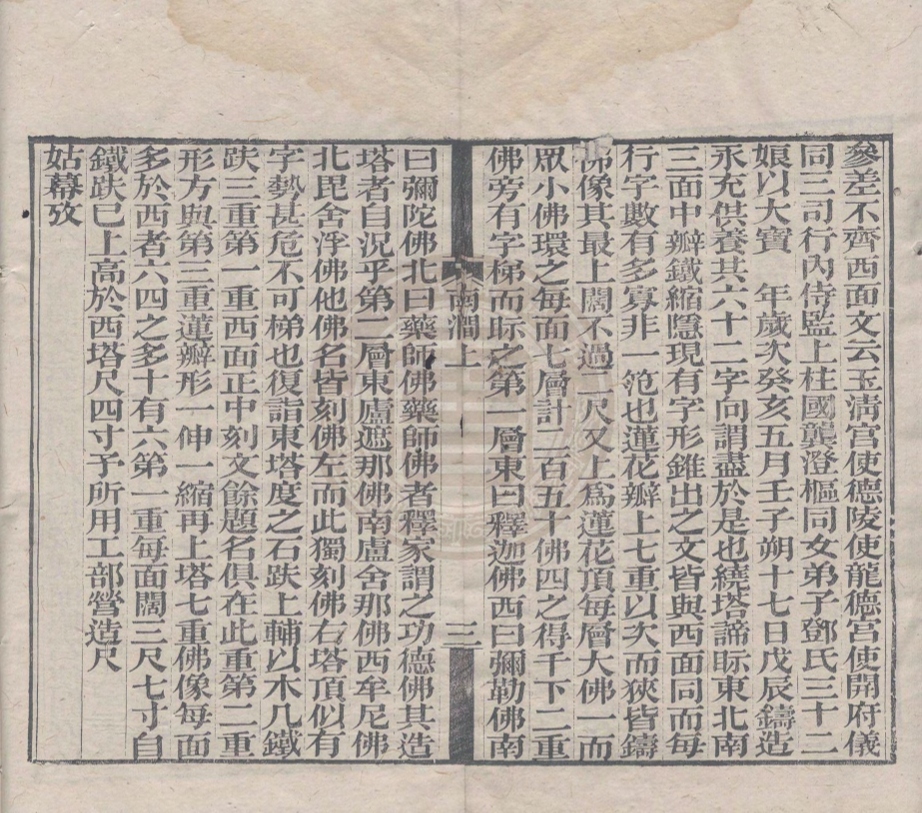 參差不齊西面文云玉清宮使德陵使龍德宮使開府儀
同三司行內侍監上柱國龔澄樞同女弟子鄧氏三十二
娘以大寶　年歲次癸亥五月壬子朔十七日戊辰鑄造
永充供養其六十二字向謂盡於是也繞塔諦眎東北南
三面中瓣鐵縮隱現有字形錐出之文皆與西面同而每
行字數有多寡非一笵也蓮花瓣上七重以次而狹皆鑄
佛像其最上闊不過二尺又上爲蓮花頂每層大佛一而
眾小佛環之每面七層計二百五十佛四之得千下二重
佛旁有字梯而眎之第一層東曰釋迦佛西曰彌勒佛南
南澗上
三
曰彌陀佛北曰藥師佛藥師佛者釋家謂之功德佛其造
塔者自況乎第二層東廬遮那佛南盧舍那佛西牟尼佛
北毘舍浮佛他佛名皆刻佛左而此獨刻佛右塔頂似有
字勢甚危不可梯也復詣東塔度之石趺上輔以木几鐵
趺三重第一重西面正中刻文餘題名俱在此重第二重
形方與第三重蓮瓣形一伸一縮再上塔七重佛像每面
多於西者六四之多十有六第一重每面闊三尺七寸自
鐵趺已上高於西塔尺四寸予所用工部營造尺
姑蘇攷